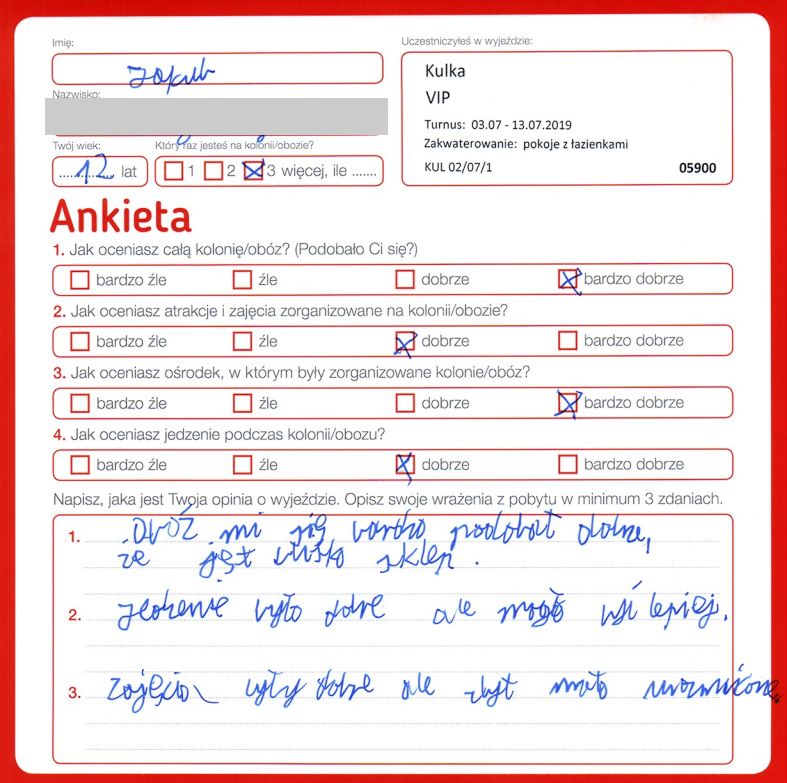 Imię:
Jakub
Uczestniczyłeś w wyjeździe:
Kulka
VIP
Turnus: 03.07 - 13.07.2019
Zakwaterowanie: pokoje z łazienkami
KUL 02/07/1 05900
Nazwisko:
Twój wiek:
12 lat
Który raz jesteś na kolonii/obozie?
1 2 3 więcej, ile .......
Ankieta
1. Jak oceniasz całą kolonię/obóz? (Podobało Ci się?)
bardzo źle źle dobrze bardzo dobrze
2. Jak oceniasz atrakcje i zajęcia zorganizowane na kolonii/obozie?
bardzo źle źle dobrze bardzo dobrze
3. Jak oceniasz ośrodek, w którym były zorganizowane kolonie/obóz?
bardzo źle źle dobrze bardzo dobrze
4. Jak oceniasz jedzenie podczas kolonii/obozu?
bardzo źle źle dobrze bardzo dobrze
Napisz, jaka jest Twoja opinia o wyjeździe. Opisz swoje wrażenia z pobytu w minimum 3 zdaniach.
1. Obóz mi się bardzo podobał dobrze,
że jest blisko sklep.
2. Jedzenie było dobre ale mogło być lepiej.
3. Zajęcia były dobre ale zbyt mało